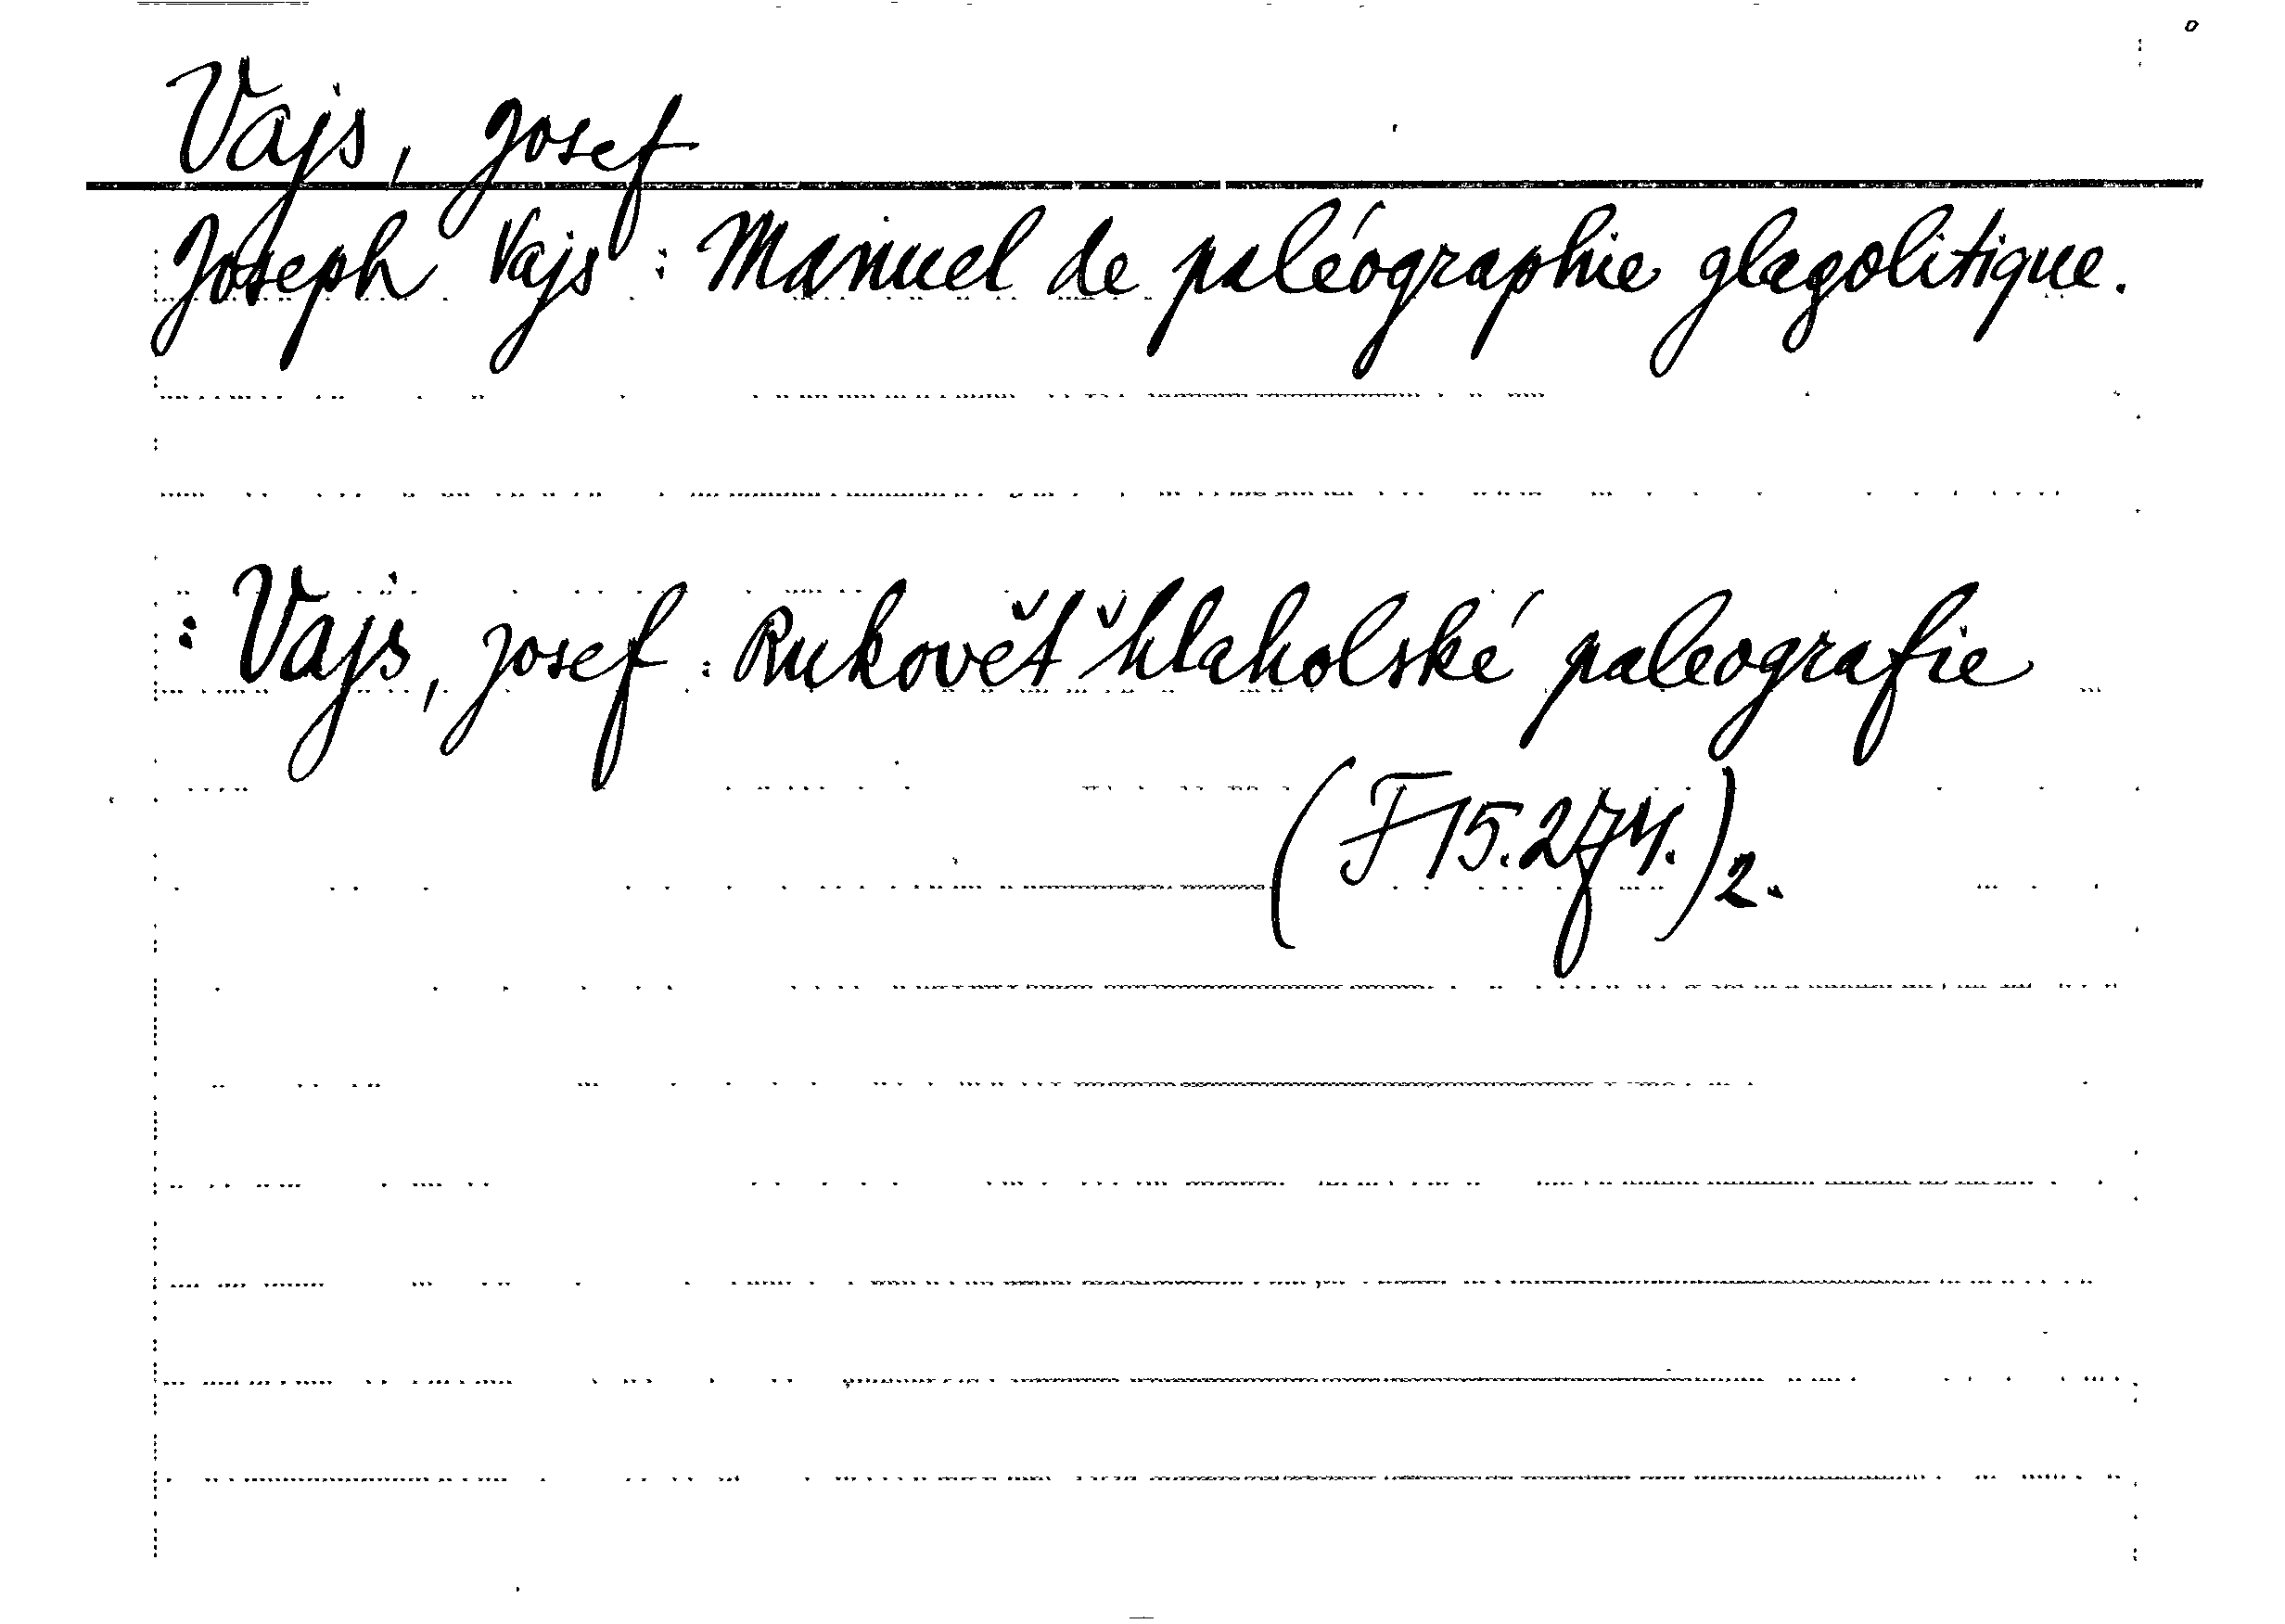 Vajs, Josef
Joseph Vajs : Manuel de paléographie glagolitique.
: Vajs, Josef : Rukovět hlaholské paleografie
(F 15.274.)2.